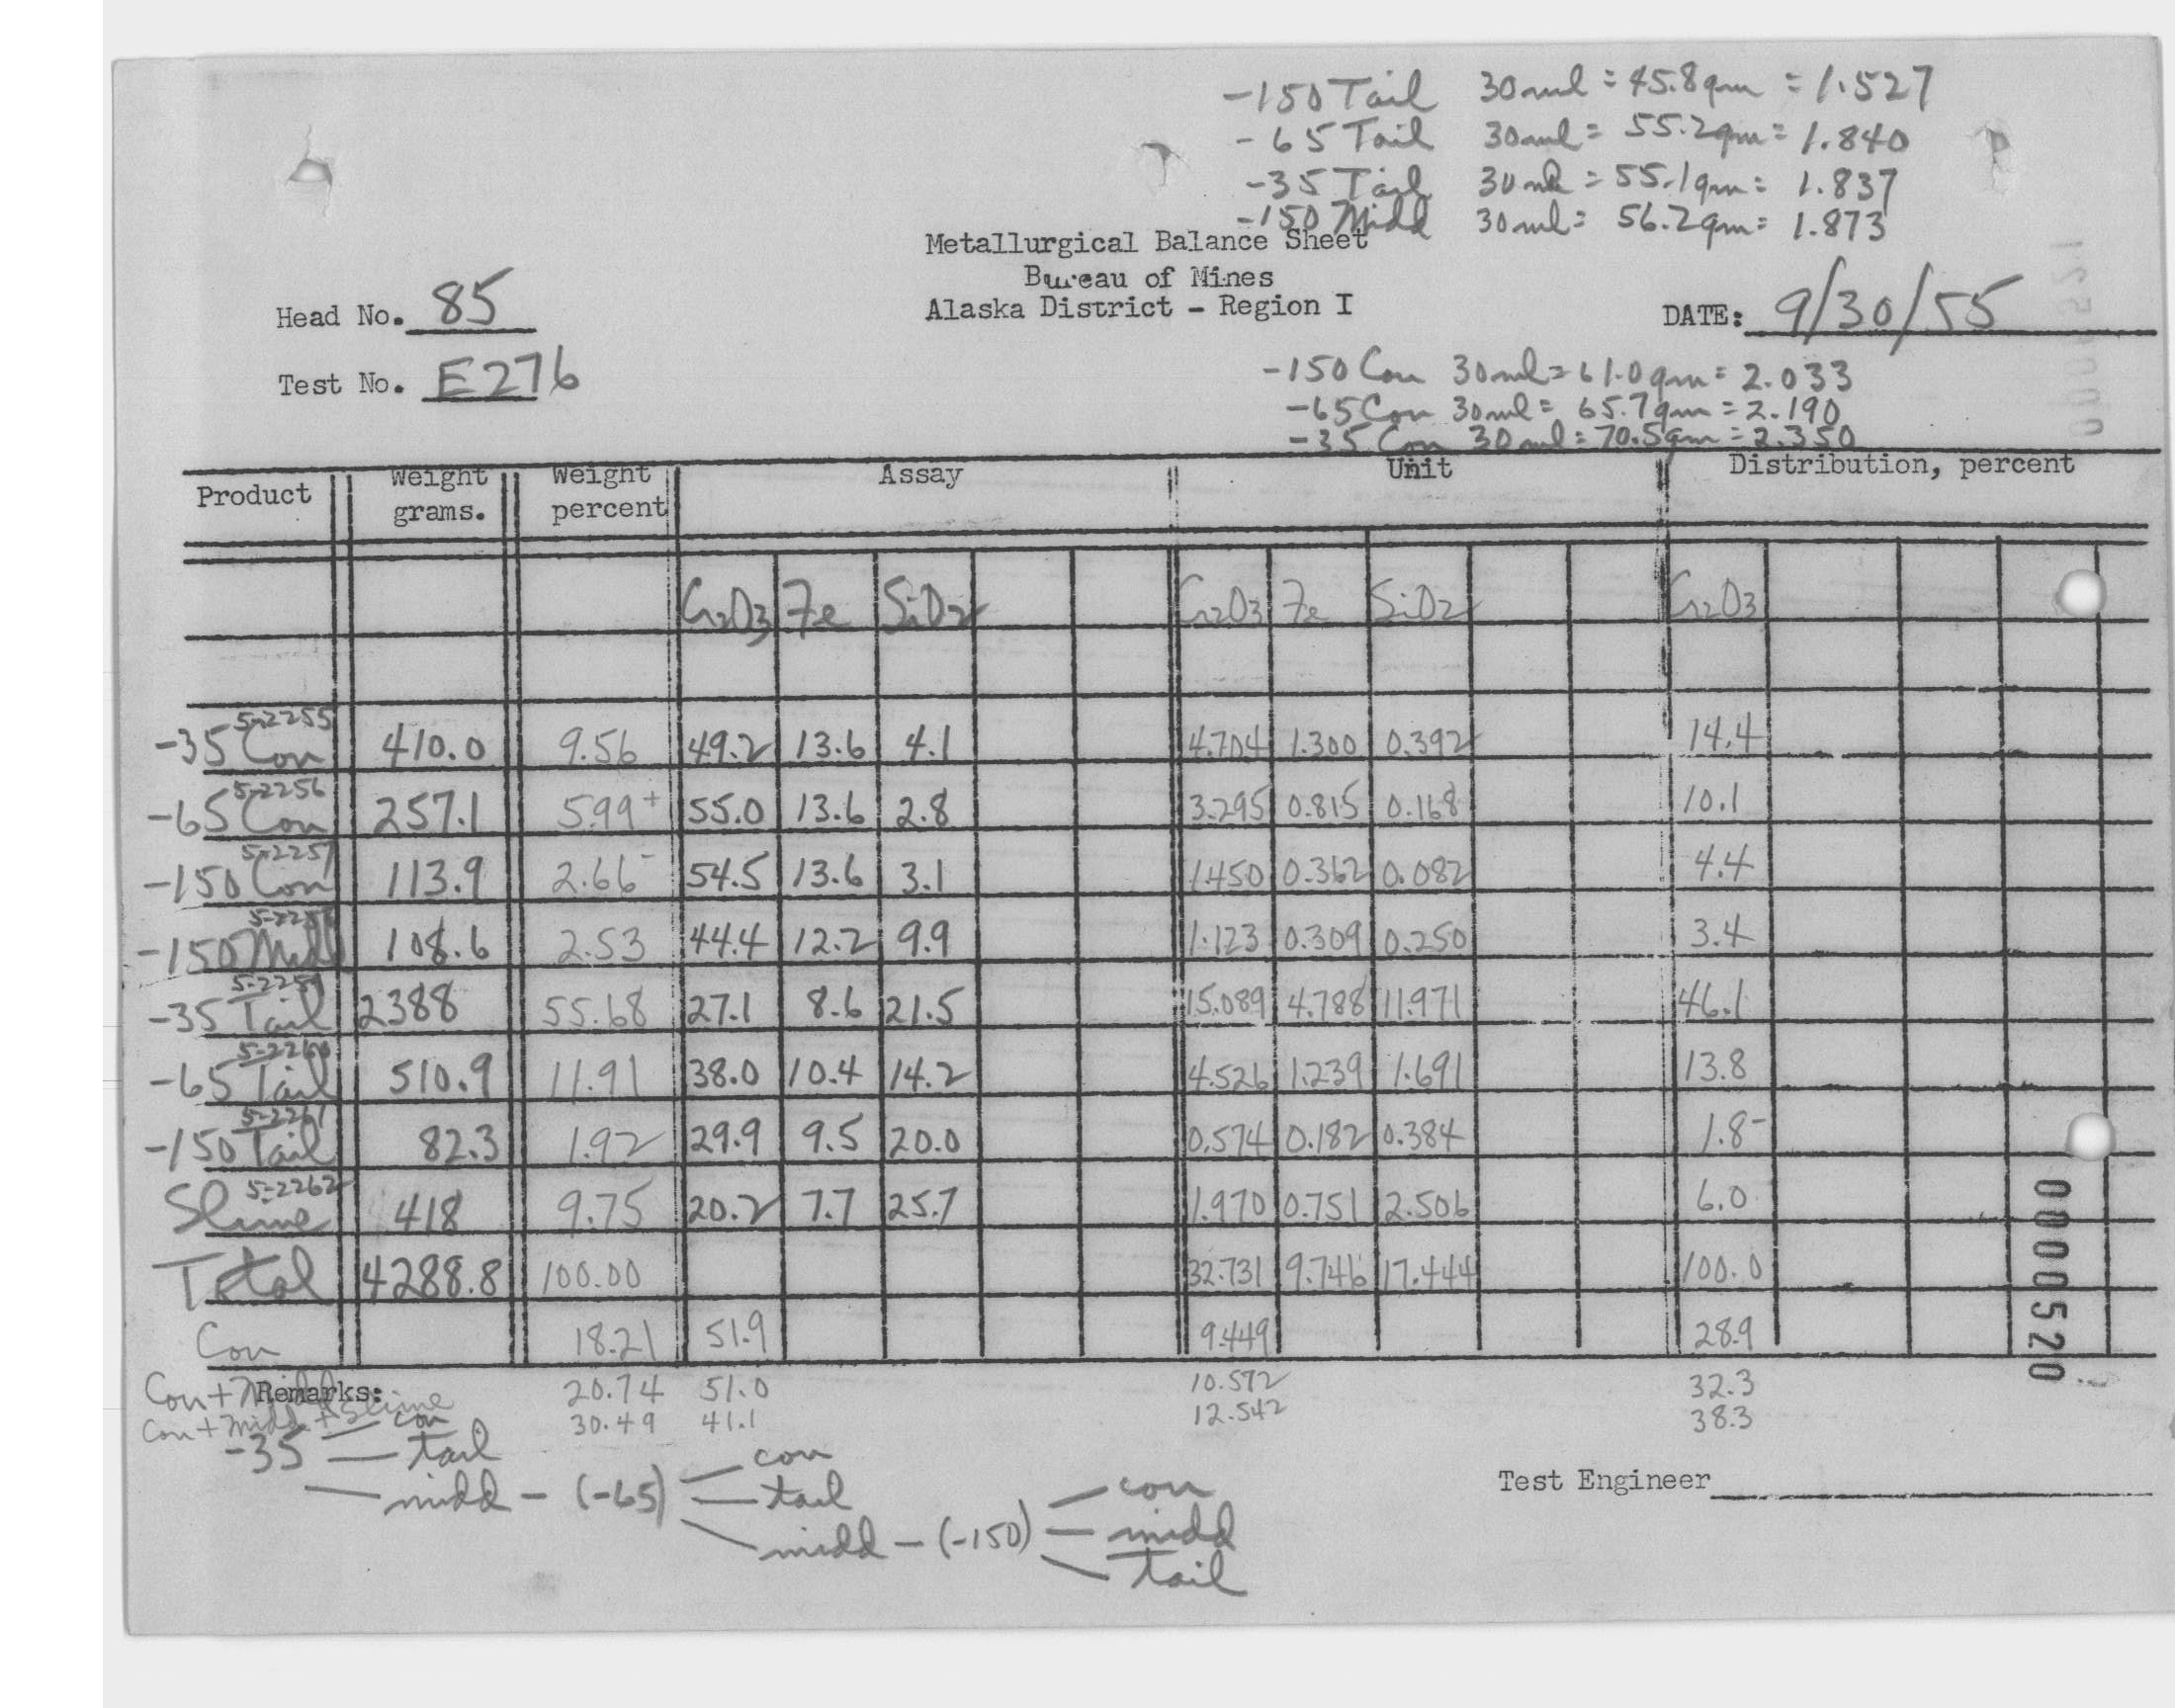 -150 Tail 30ml = 45.8gm = 1.527
-65 Tail 30ml = 55.2gm = 1.840
-35 Tail 30ml = 55.1gm = 1.837
-150 Midd 30ml = 56.2gm = 1.873
Metallurgical Balance Sheet
Bureau of Mines
Alaska District - Region I
Head No. 85
DATE: 9/30/55
Test No. E276
-150 Con 30ml = 61.0gm = 2.033
-65 Con 30ml = 65.7gm = 2.190
-35 Con 30ml = 70.5gm = 2.350
Product Weight grams. Weight percent Assay Unit Distribution, percent
Cr2O3 Fe SiO2 Cr2O3 Fe SiO2 Cr2O3
5-2255
-35 Con 410.0 9.56 49.2 13.6 4.1 4.704 1.300 0.392 14.4
5-2256
-65 Con 257.1 5.99+ 55.0 13.6 2.8 3.295 0.815 0.168 10.1
5-2257
-150 Con 113.9 2.66- 54.5 13.6 3.1 1.450 0.362 0.082 4.4
-150 Midd 108.6 2.53 44.4 12.2 9.9 1.123 0.309 0.250 3.4
5-2259
-35 Tail 2388 55.68 27.1 8.6 21.5 15.089 4.788 11.971 46.1
5-2260
-65 Tail 510.9 11.91 38.0 10.4 14.2 4.526 1.239 1.691 13.8
5-2261
-150 Tail 82.3 1.92 29.9 9.5 20.0 0.574 0.182 0.384 1.8-
5-2262
Slime 418 9.75 20.2 7.7 25.7 1.970 0.751 2.506 6.0
Total 4288.8 100.00 32.731 9.746 17.444 100.0
Con 18.21 51.9 9.449 28.9
Con + Midd 20.74 51.0 10.572 32.3
Remarks:
Con + Midd + Slime 30.49 41.1 12.542 38.3
con
-35 — tail
midd - (-65)
con
tail
midd - (-150)
con
midd
tail
Test Engineer
0000520